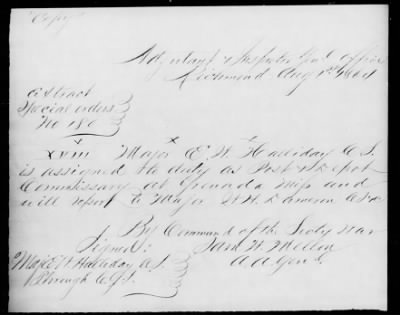 Copy
Adjutant & Inspector Genl Office
Richmond Aug 1st 1864
Extract
Special orders
No 180
x x x
XVIII Major E. W. Halliday C.S.
is assigned to duty as Post & Depot
Commissary at Grenada Miss and
will report to Major W. H. Dameron C.S. &c
By Command of the Secty War
Signed: Saml W. Melton
A.A. Genl
Maj E W. Halliday C.S.
Through C.G.S.